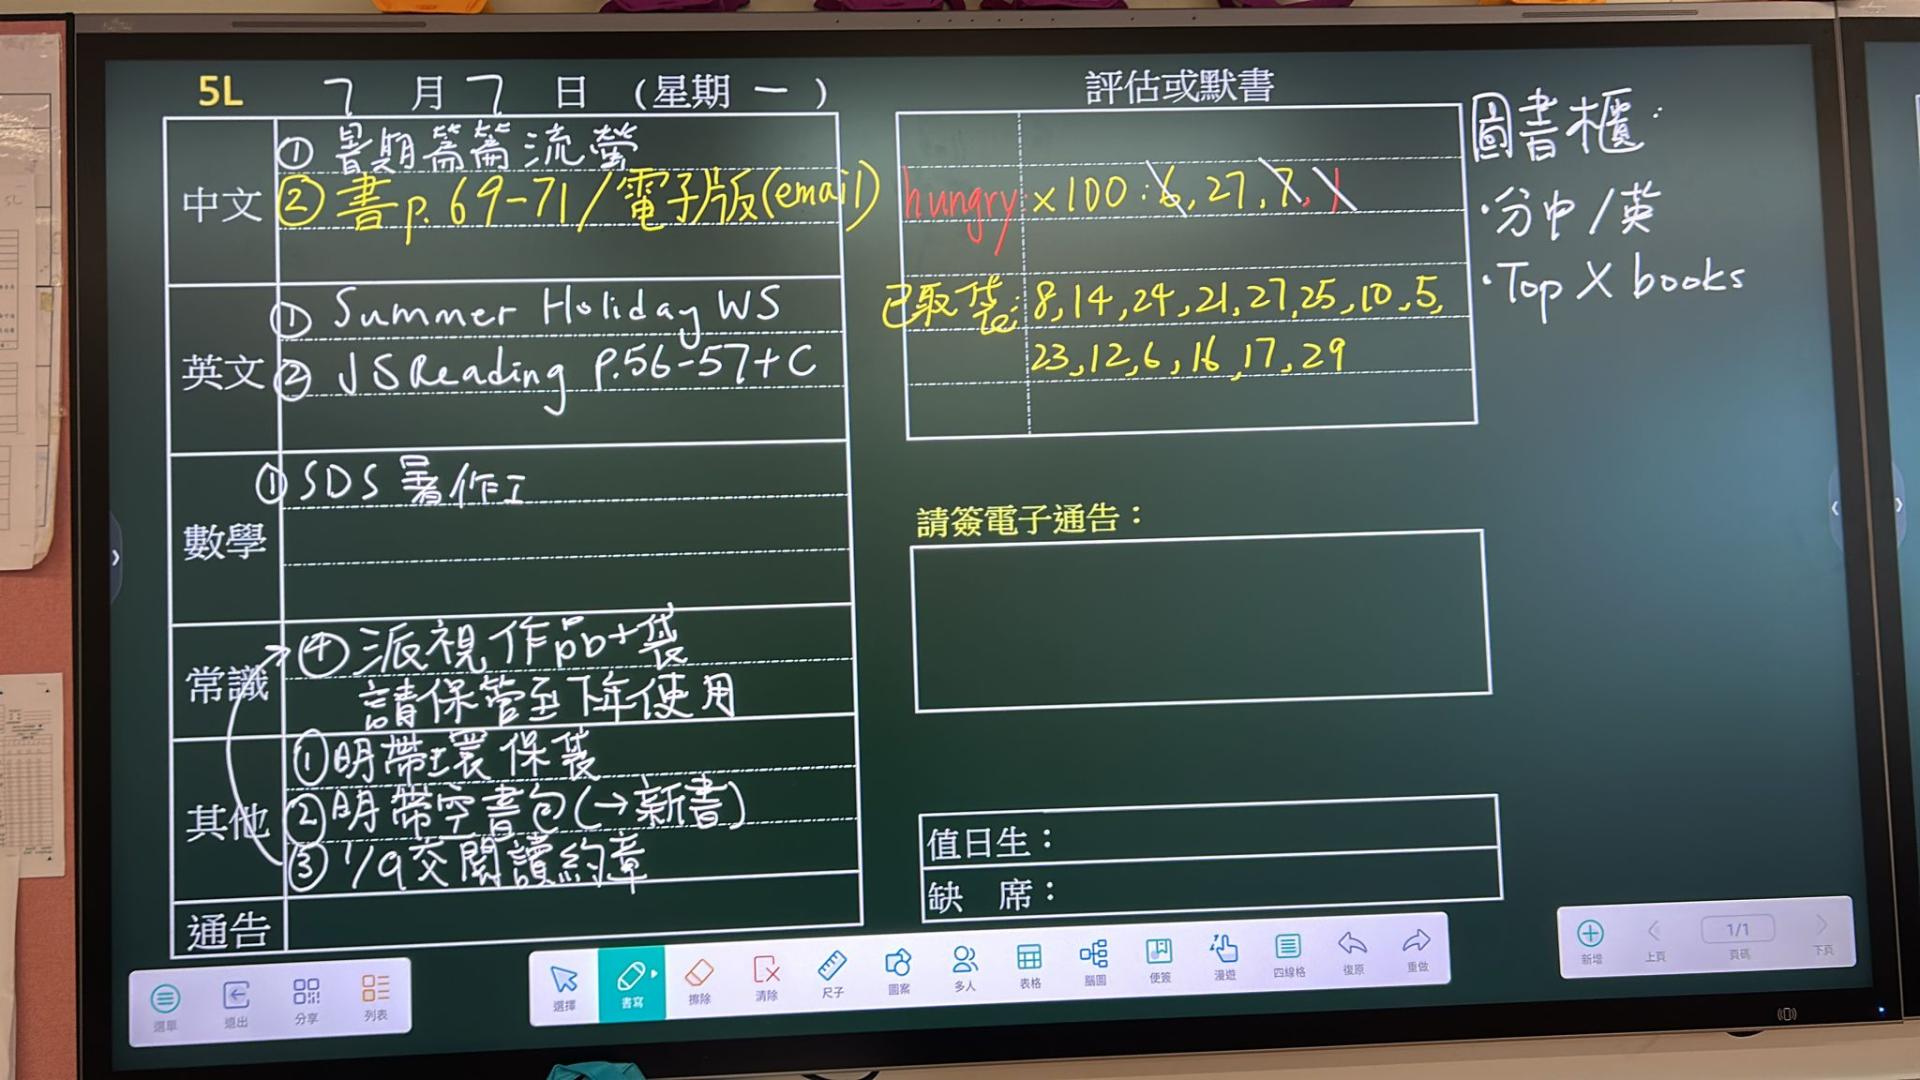 5L 7月7日 (星期一)
中文
①暑期篇篇流螢
②書p.69-71/電子版(email)
英文
① Summer Holiday WS
② JS Reading P.56-57+C
數學
①SDS 暑作工
常識
④派視作品+袋
請保管至下年使用
其他
①明帶環保袋
②明帶空書包(→新書)
③1/9交閱讀約章
通告
評估或默書
hungry: x100: 6, 27, 7, 1
已取袋: 8,14,24,21,27,25,10,5,
23,12,6,16,17,29
請簽電子通告：
值日生：
缺 席：
圖書櫃:
·分中/英
·Top X books
選單
退出
分享
列表
選擇
書寫
擦除
清除
尺子
圖案
多人
表格
腦圖
便簽
漫遊
四線格
復原
重做
新增
上頁
1/1
頁碼
下頁